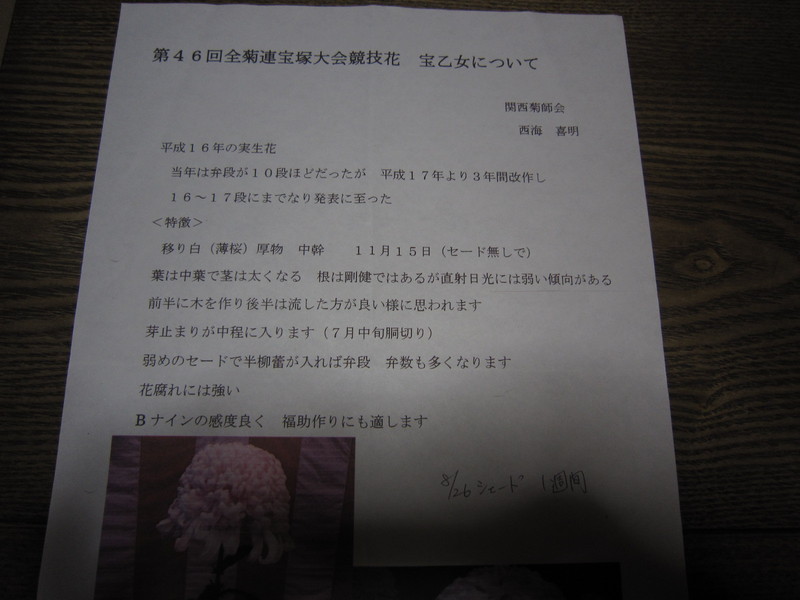 第46回全菊連宝塚大会競技花　宝乙女について
関西菊師会
西海　喜明
平成16年の実生花
当年は弁段が10段ほどだったが　平成17年より3年間改作し
16～17段にまでなり発表に至った
＜特徴＞
移り白（薄桜）厚物　中幹　　11月15日（セード無しで）
葉は中葉で茎は太くなる　根は剛健ではあるが直射日光には弱い傾向がある
前半に木を作り後半は流した方が良い様に思われます
芽止まりが中程に入ります（7月中旬胴切り）
弱めのセードで半柳蕾が入れば弁段　弁数も多くなります
花腐れには強い
Bナインの感度良く　福助作りにも適します
8/26 シェード　1週間